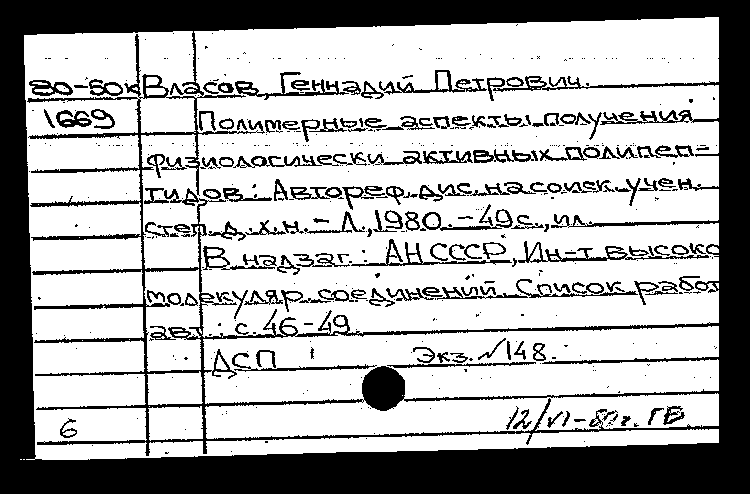 80-50к Власов, Геннадий Петрович.
1669 Полимерные аспекты получения
физиологически активных полипеп-
тидов: Автореф. дис. на соиск. учен.
степ. д. х. н. - Л., 1980. - 49 с., ил.
В надзаг.: АН СССР, Ин-т высоко
молекуляр. соединений. Список работ
авт.: с. 46-49.
ДСП Экз. №148.
6 12/VI-80г. ГВ